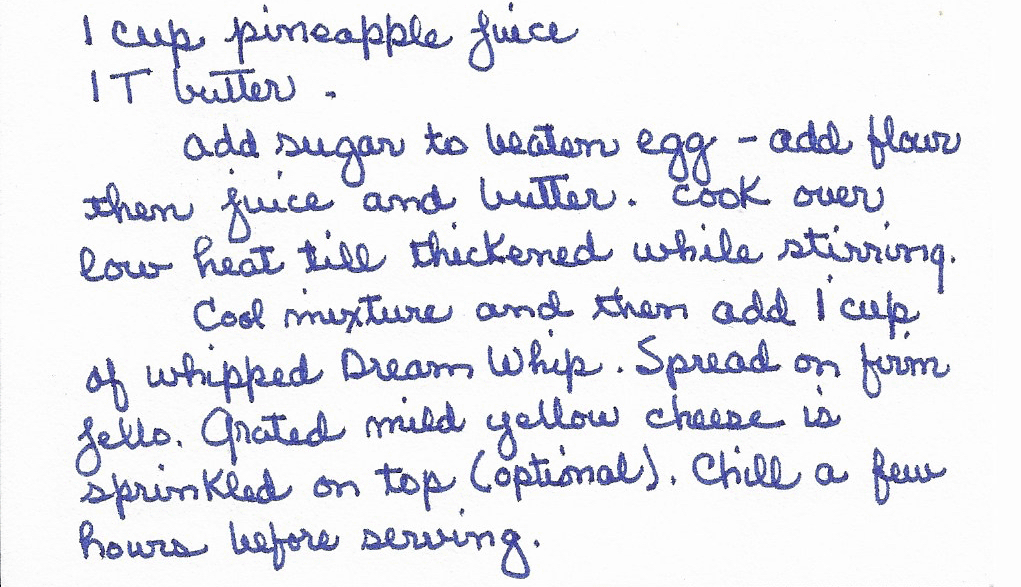 1 cup pineapple juice
1 T butter.
add sugar to beaten egg - add flour
then juice and butter. Cook over
low heat till thickened while stirring.
Cool mixture and then add 1 cup
of whipped Dream Whip. Spread on firm
jello. Grated mild yellow cheese is
sprinkled on top (optional). Chill a few
hours before serving.